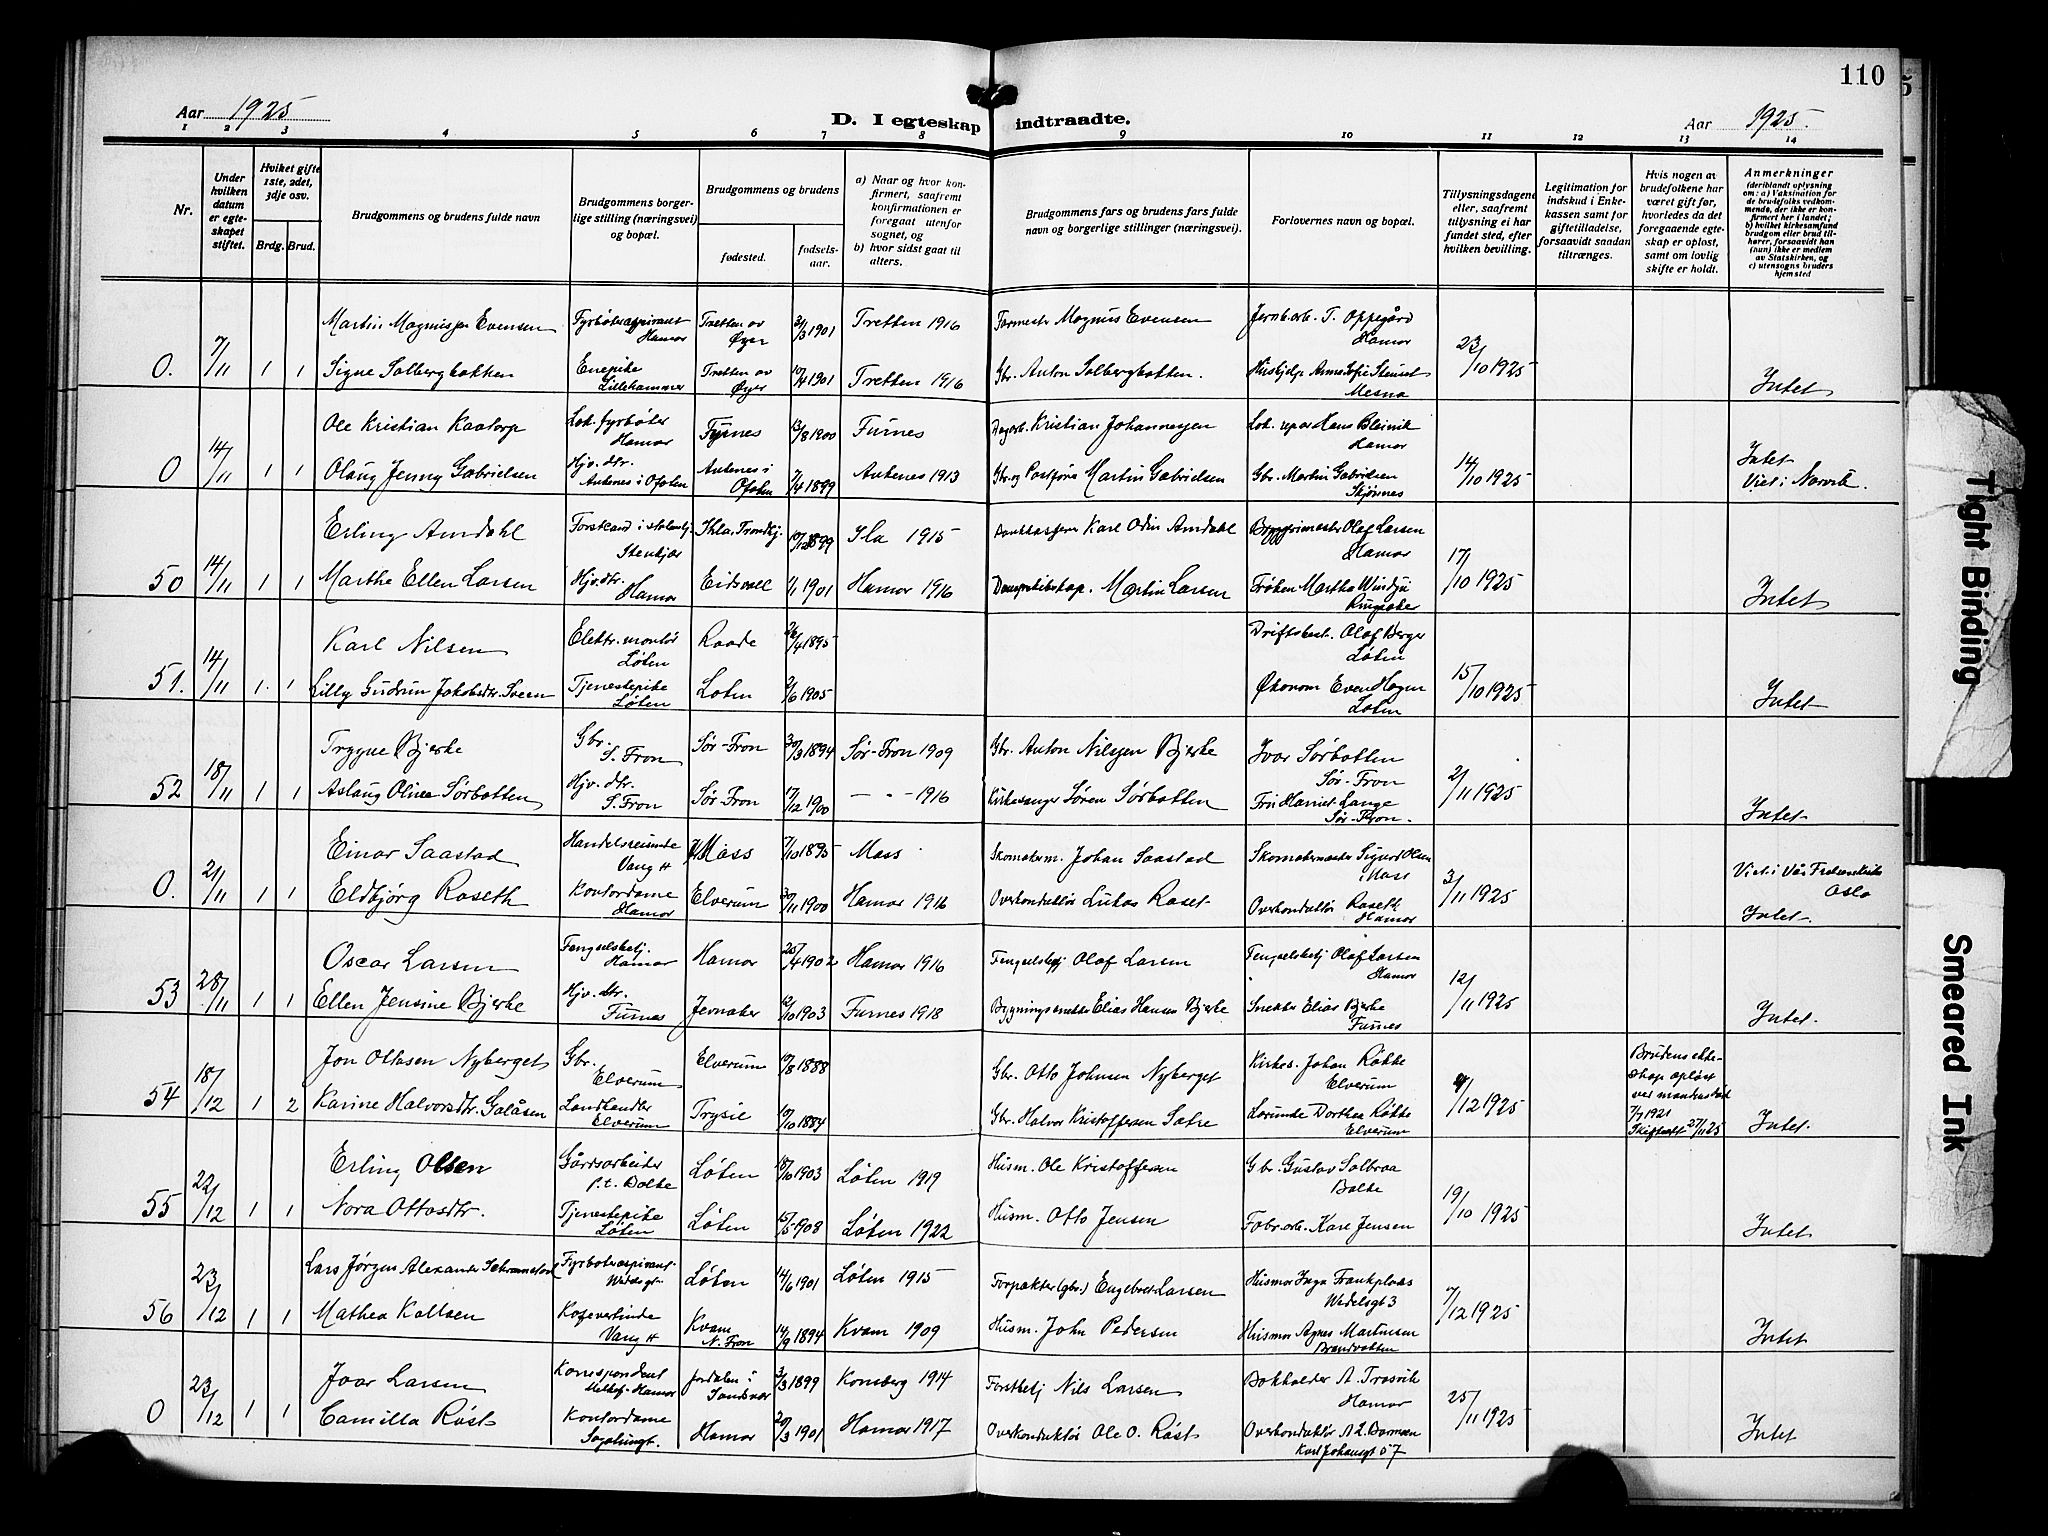 110
Aar 1925
D. I egteskap indtraadte.
Aar 1925.
1 2 3 4 5 6 7 8 9 10 11 12 13 14
Nr.
Under hvilken datum er egteskapet stiftet.
Hvilket gifte 1ste, 2det, 3dje osv.
Brdg. Brud.
Brudgommens og brudens fulde navn
Brudgommens borgerlige stilling (næringsvei) og bopæl.
Brudgommens og brudens
fødested.
fødselsaar.
a) Naar og hvor konfirmert, saafremt konfirmationen er foregaat utenfor sognet, og
b) hvor sidst gaat til alters.
Brudgommens fars og brudens fars fulde navn og borgerlige stillinger (næringsvei).
Forlovernes navn og bopæl.
Tillysningsdagene eller, saafremt tillysning ei har fundet sted, efter hvilken bevilling.
Legitimation for indskud i Enkekassen samt for giftetilladelse, forsaavidt saadan tiltrænges.
Hvis nogen av brudefolkene har været gift før, hvorledes da det foregaaende egteskap er opløst, samt om lovlig skifte er holdt.
Anmerkninger
(deriblandt oplysning om: a) Vaksination for de brudefolks vedkommende, der ikke er konfirmert her i landet; b) hvilket kirkesamfund brudgom eller brud tilhører, forsaavidt han (hun) ikke er medlem av Statskirken, og c) utensogns bruders hjemsted
Martin Magnussen Evensen Fyrbøteraspirant Hamar Tretten av Øyer 1901 Tretten 1916 Magnus Evensen Jernb.arb. T. Oppegård Hamar
0. 7/11 1 1 Signe Solbergbakken Enepike Lillehammer Tretten av Øyer 10/4 1901 Tretten 1916 Gbr. Anton Solbergbakken. Mesna 23/10 1925 Intet
Ole Kristian Kaatorp Lok. fyrbøter Hamar Furnes 13/8 1900 Furnes Kristian Johannesen Lok. rep. Hans Hamar
0 14/11 1 1 Olaug Jenny Gabrielsen Hjv. dtr. Ankenes i Ofoten Ankenes i Ofoten 7/4 1899 Ankenes 1913 Gbr. og Postfører Martin Gabrielsen Gbr. Martin Gabrielsen Skjønnes 14/10 1925 Intet Viet i Narvik.
Erling Amdahl Stenkjær Trondhj. 10/12 1899 Ila 1915 Karl Odin Amdahl Olaf Larsen Hamar
50 14/11 1 1 Marthe Ellen Larsen Hjv. dtr. Hamar Eidsvoll 1/1 1901 Hamar 1916 Martin Larsen Frøken Martha Ringsaker 17/10 1925 Intet
Karl Nilsen Elektr. montør Løten Raade 26/4 1895 Driftsbest. Olaf Berger Løten
51. 14/11 1. 1 Lilly Gudrun Jakobsdtr. Sveen Tjenestepike Løten Løten 2/6 1905 Økonom Even Hagen Løten 15/10 1925 Intet
Trygve Bjerke Gbr. S. Fron Sør-Fron 30/3 1894 Sør-Fron 1909 Gbr. Anton Nilsen Bjerke Ivar Sørbotten Sør-Fron
52 18/11 1 1 Aslaug Olinea Sørbotten Hjv. dtr. S. Fron Sør-Fron 17/12 1900 — " - 1916 Kirkesanger Søren Sørbotten Fru Harriet Lange Sør-Fron. 2/11 1925 Intet
Einar Saastad Handelsreisende Vang H Moss 7/10 1895 Moss Skomakerm. Johan Saastad Skomakermester Sigurd Olsen Moss Viet i Vår Oslo
0. 21/11 1 1 Eldbjørg Roseth Kontordame Hamar Elverum 30/11 1900 Hamar 1916 Overkonduktør Lukas Roset Overkonduktør Roseth Hamar 3/11 1925 Intet
Oscar Larsen Fengselsbetj. Hamar Hamar 25/4 1902 Hamar 1916 Fengselsbetj Olaf Larsen Fengselsbetj Olaf Larsen Hamar
53 28/11 1 1 Ellen Jensine Bjerke Hjv. dtr. Furnes Jevnaker 2/10 1903 Furnes 1918 Bygningssnekker Elias Hansen Bjerke Snekker Elias Bjerke Furnes 12/11 1925 Intet.
Jon Ottosen Nyberget Gbr. Elverum Elverum 10/8 1888 Gbr. Otto Johnsen Nyberget Kirkes. Johan Røkke Elverum Brudens ekteskap opløst ved mandens død 7/7 1921 Skifteatt 27/11 25
54 18/12 1 2 Karine Halvorsdtr. Galåsen Landhandler Elverum Trysil 10/10 1884 Gbr. Halvor Kristoffersen Sætre Dorthea Røkke Elverum 4/12 1925 Intet.
Erling Olsen Gårdsarbeider p.t. Balke Løten 18/10 1903 Løten 1919 Husm. Ole Kristoffersen Gbr. Gustav Solbraa Balke
55 22/12 1 1 Nora Ottosdtr. Tjenestepike Løten Løten 15/5 1908 Løten 1922 Husm. Otto Jensen Fabr.arb. Karl Jensen 19/10 1925 Intet
Lars Jørgen Alexander Fyrbøteraspirant Wedelsgt. Løten 14/6 1901 Løten 1915 Forpakter (gbr.) Engebret Larsen Husmor Inga Wedelsgt 3
56 23/12 1 1 Mathea Kollsen Vang H Kvam N. Fron 14/9 1894 Kvam 1909 Husm. John Pedersen Husmor Agnes Martinsen 7/12 1925 Intet
Ivar Larsen Korrespondent Hamar Jondalen i Sandsvær 3/3 1899 Konsberg 1914 Forstbetj Nils Larsen Bokholder A. Trosvik Hamar
0 23/12 1 1 Camilla Røst Kontordame Hamar 20/3 1901 Hamar 1917 Overkonduktør Ole O. Røst Overkonduktør Karl Johansgt 57 25/11 1925 Intet
Tight Binding
Smeared Ink